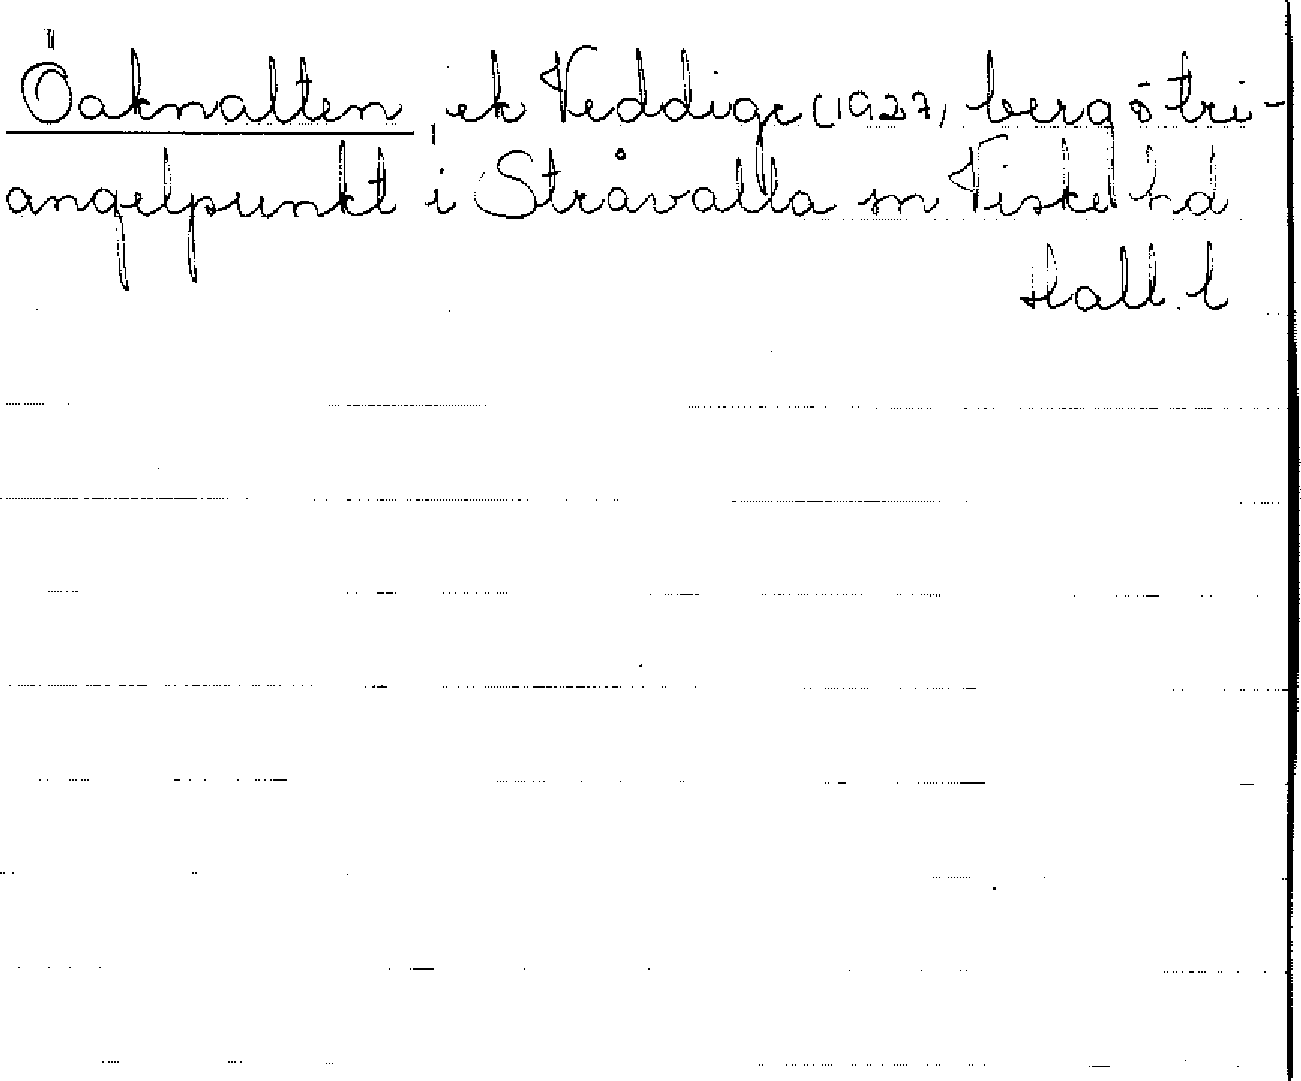 Öaknalten, ek Veddige (1927, berg o tri-
angelpunkt i Stråvalla sn Viske hd
Hall. l